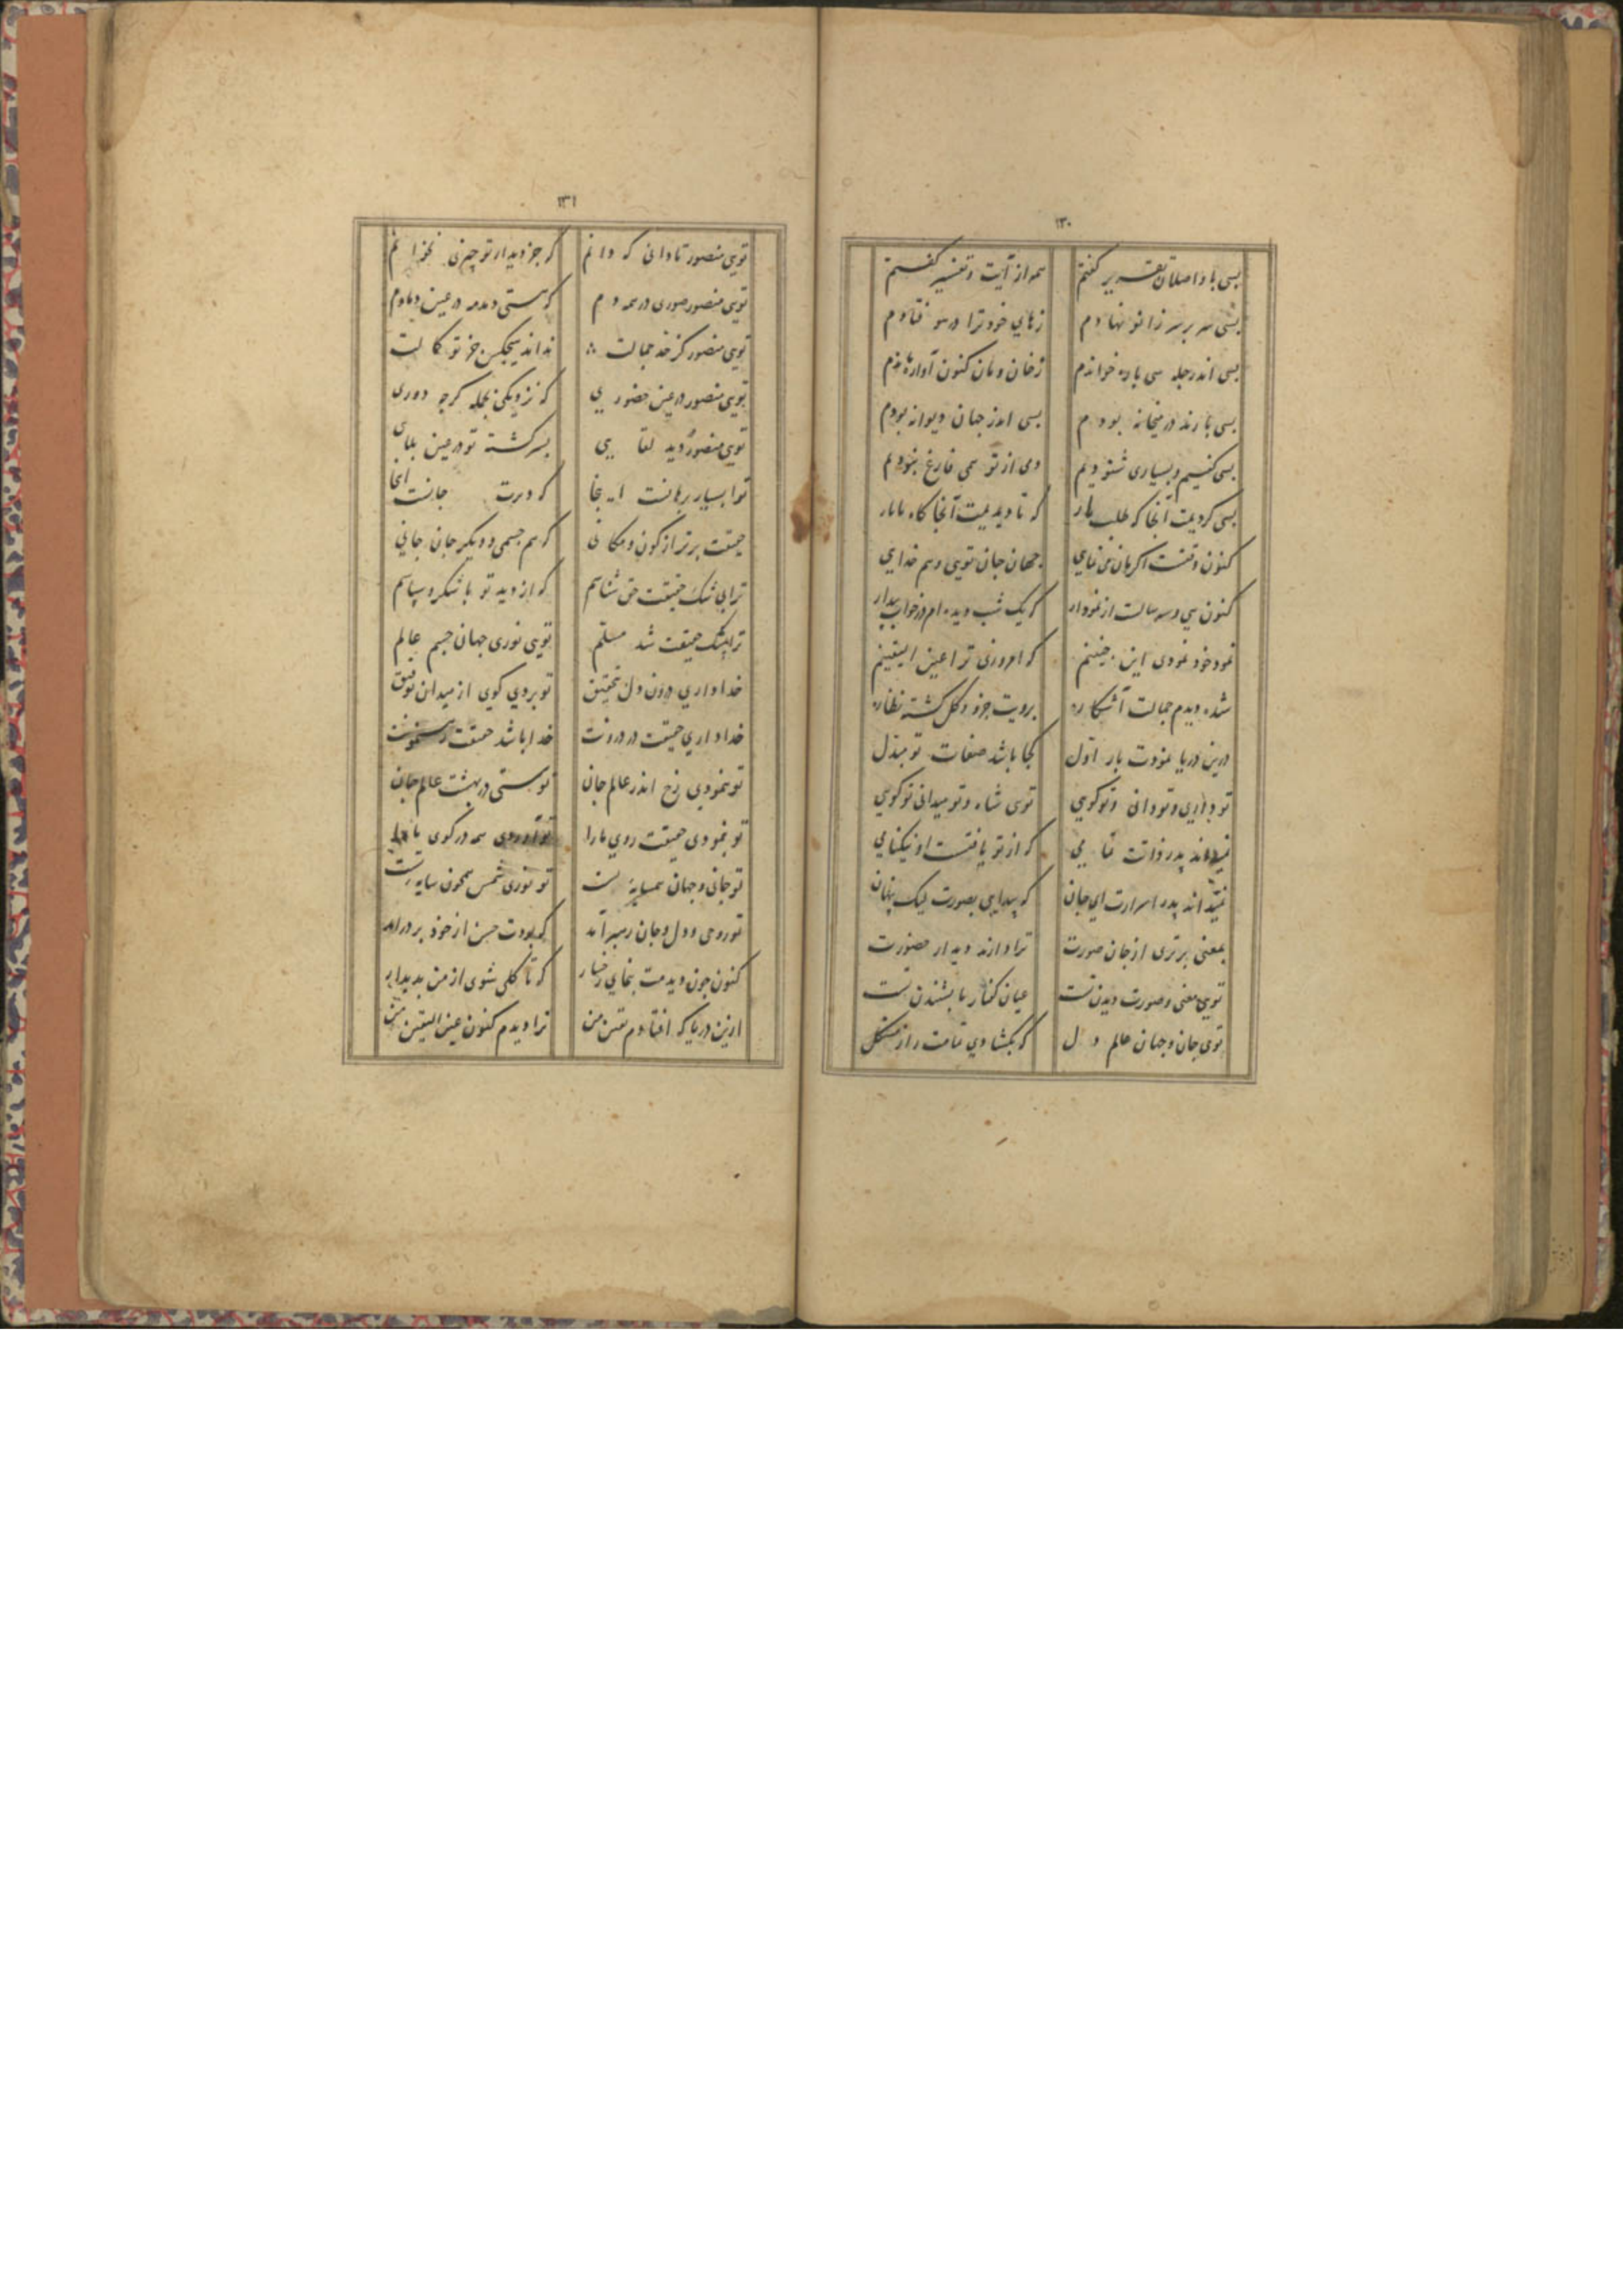 ۱۳۰
بسی با واصلان تقریر کفتم همه از آیت و تفسیر کفتم
بسی سر بر سر زانو نهادم ز های خود ترا در هو فتادم
بسی اندر چله سی پاره خواندم ز خان و مان کنون آواره ماندم
بسی با رند در میخانه بودم بسی اندر جهان دیوانه بودم
بسی کفتیم و بسیاری شنودیم دمی از تو همی فارغ نبودیم
بسی کردیمت آنجا که طلب کار که تا دیدیمت آنجا کاه
کنون وقتست اکر بازمی نمایی جهان جان تویی و هم خدایی
کنون سی و سه سالست از نمودار که یک شب دیده‌ام در خواب بیدار
نمود خود نمودی این چنینم که امروزی ترا عین الیقینم
شده دیدم جمالت آشکاره برویت جزو و کل کشته نظاره
درین دریا نمودت بار اول کجا باشد صفات تو مبدل
تو داری و تو دانی و تو کویی توی شاه و تو میدانی تو کویی
نمیداند پدر ذاتت تمامی که از تو یافتست او نیکنامی
نمیداند پدر اسرارت ای جان که پیدایی بصورت لیک پنهان
بمعنی برتری از جان صورت ترا دارند دیدار حضورت
تویی معنی و صورت دیدن تست عیان کفتار ما بشنیدن تست
توی جان و جهان عالم دل که بکشادی تمامت راز مشکل
۱۳۱
تویی منصور تا دانی که دانم که جز دیدار تو چیزی نخوانم
تویی منصور صوری در همه دم که هستی دمدمه در عین دمادم
تویی منصور کز خد جمالت نداند هیچکس جز تو کمالت
تویی منصور در عین حضوری که نزدیکی بجمله کرچه دوری
تویی منصور دید لقایی بسر کشته تو در عین بلایی
ترا بسیار رهانت اینجا که دیرت جانت انجا
حقیقت برتر از کون و مکانی که هم جسمی و دیکر جان جانی
ترا بی شک حقیقت حق شناسم که از دید تو با شکر و سپاسم
ترا بیشک حقیقت شد مسلم تویی نوری جهان جسم عالم
خدا داری درون دل تحقیق تو بردی کوی از میدان توفیق
خدا داری حقیقت در درونت خدا باشد حقیقت رهنمونت
تو بنمودی رخ اندر عالم جان تو هستی در بهشت عالم جان
تو بنمودی حقیقت روی ما را تو آوردی همه در کوی ما را
تو جانی و جهان همسایه تست تو نوری شمس همچون سایه تست
تو روحی و دل و جان رهبر آمد که بودت حسن از خود بر در آمد
کنون چون دیدمت بنمای رخسار که تا کلی شوی از من پدیدار
ازین دریا که افتادم یقین من ترا دیدم کنون عین الیقین من